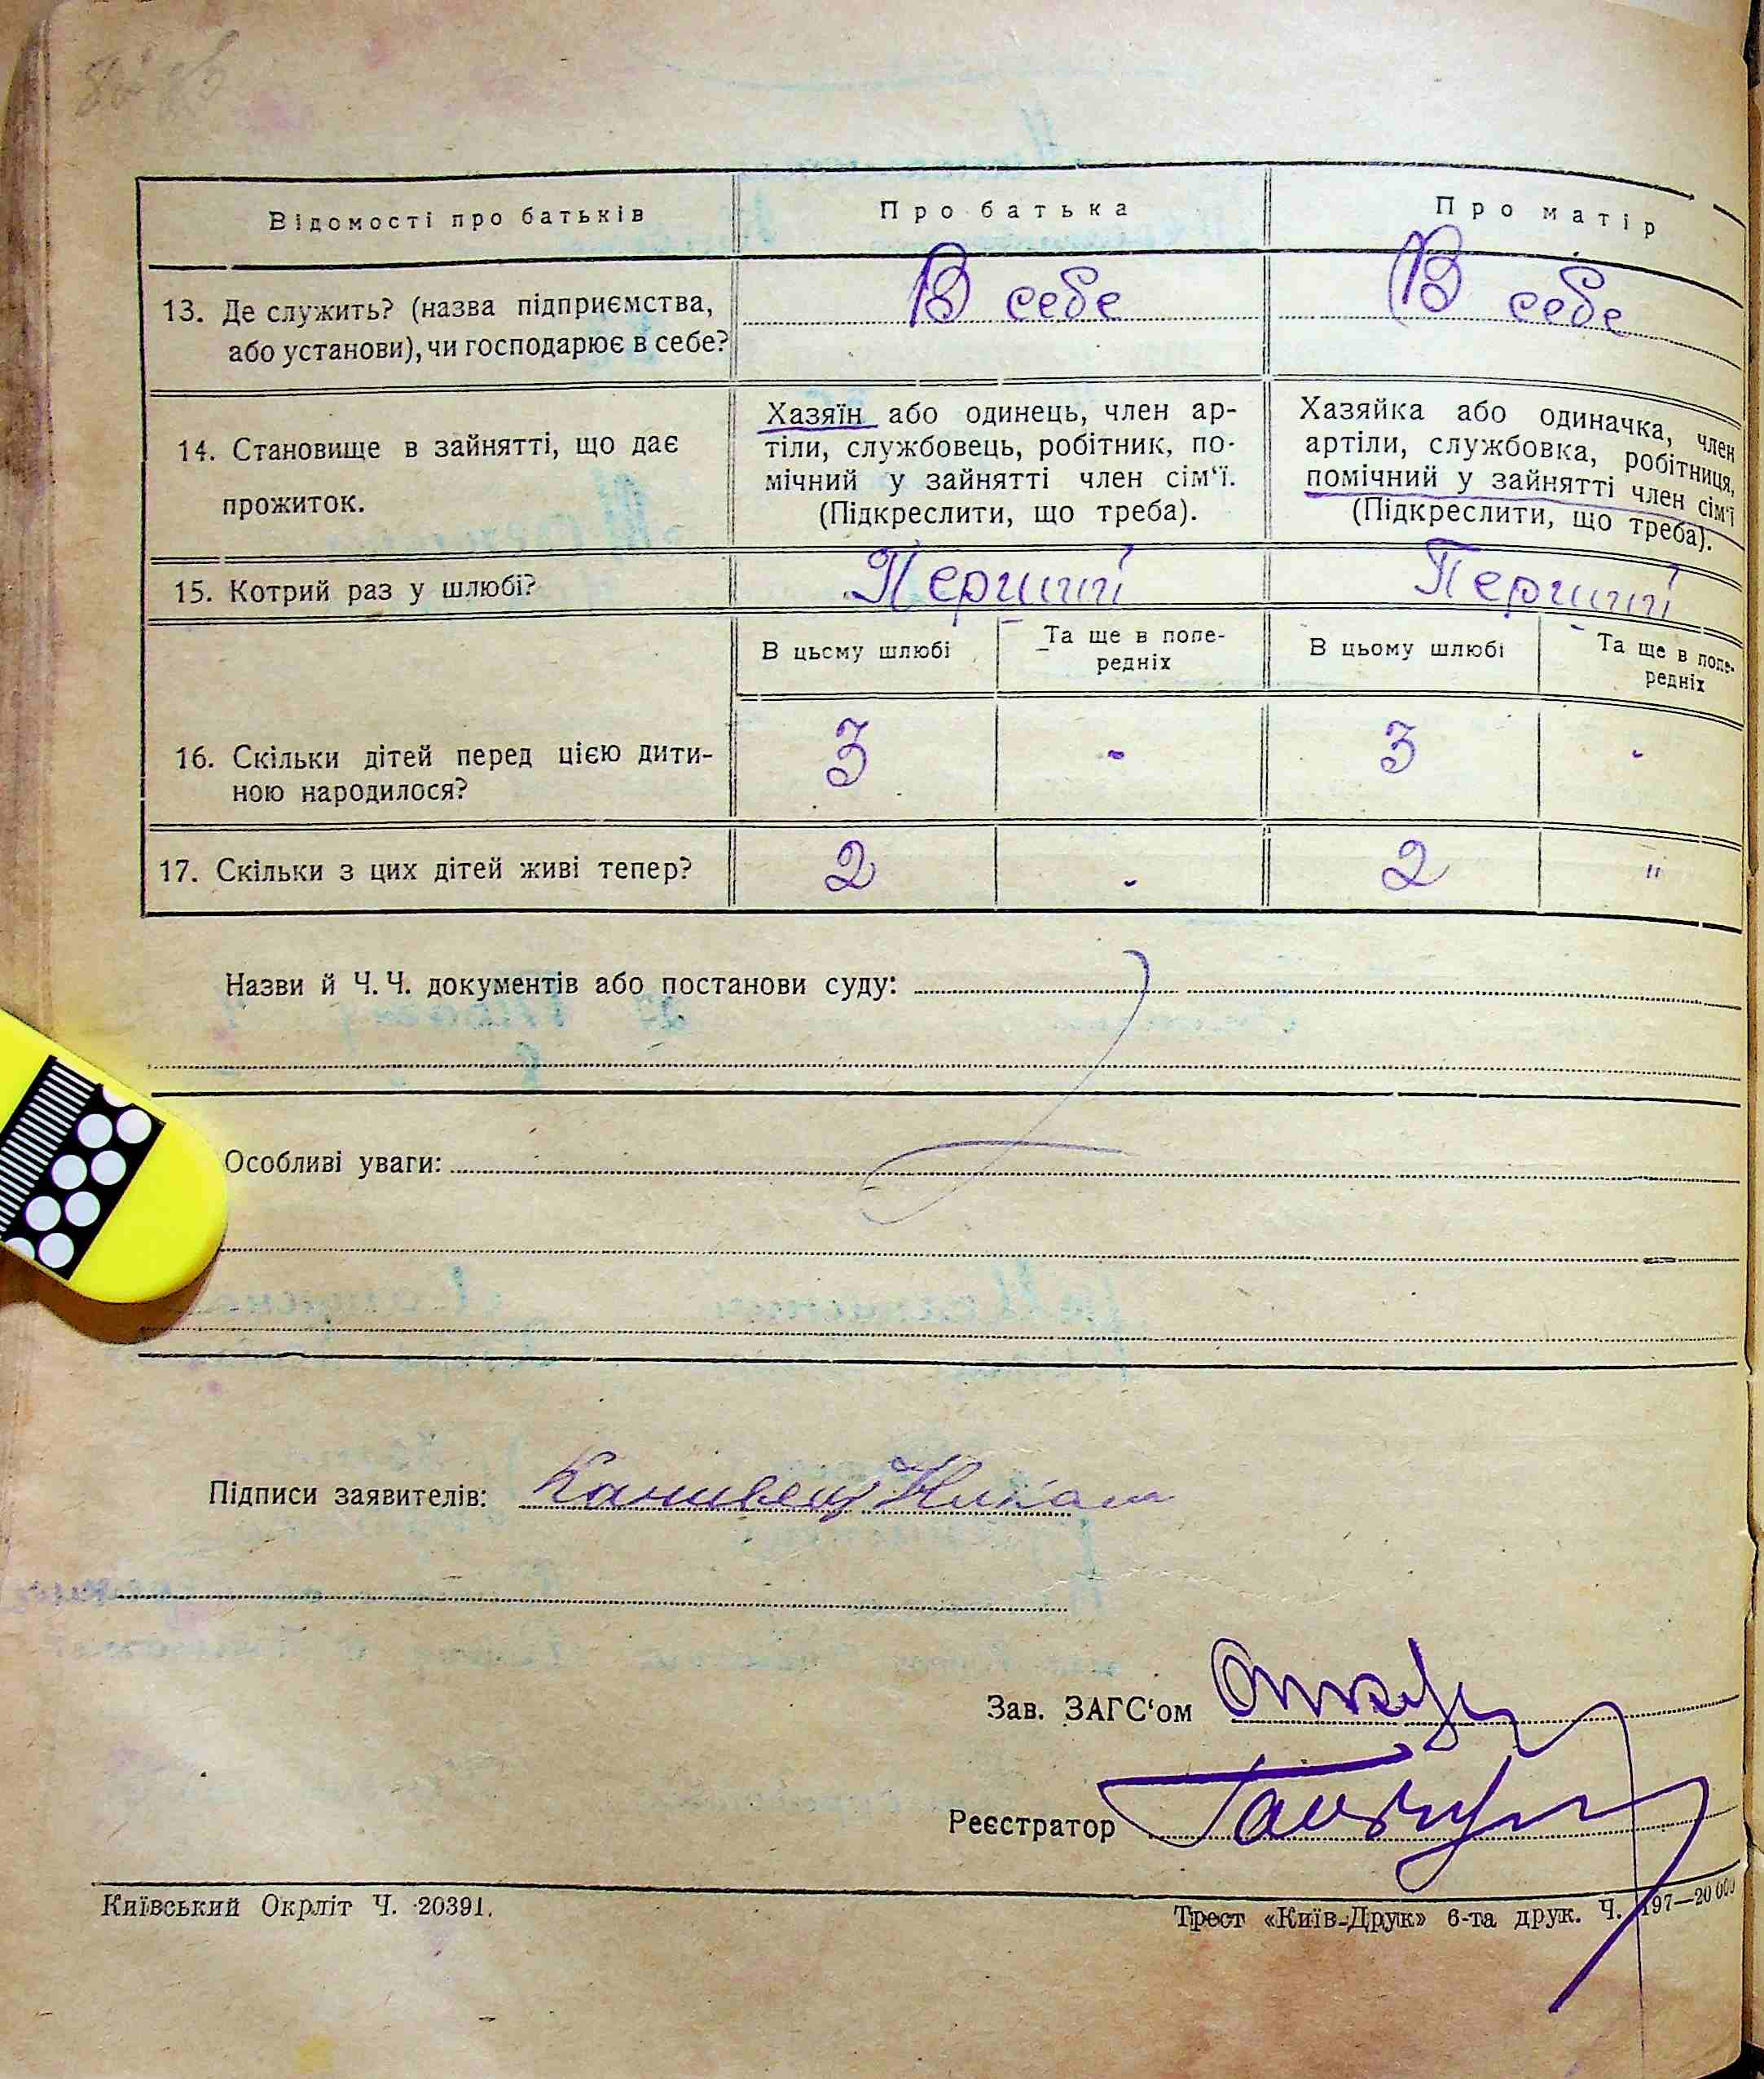 82
Відомості про батьків
Про батька
Про матір
13. Де служить? (назва підприємства,
або установи), чи господарює в себе?
В себе
В себе
14. Становище в зайнятті, що дає
прожиток.
Хазяїн або одинець, член ар-
тіли, службовець, робітник, по-
мічний у зайнятті член сім'ї.
(Підкреслити, що треба).
Хазяйка або одиначка, член
артіли, службовка, робітниця,
помічний у зайнятті член сім'ї
(Підкреслити, що треба).
15. Котрий раз у шлюбі?
Перший
Перший
В цьому шлюбі
Та ще в попе-
редніх
В цьому шлюбі
Та ще в попе-
редніх
16. Скільки дітей перед цією дити-
ною народилося?
3
-
3
-
17. Скільки з цих дітей живі тепер?
2
-
2
"
Назви й Ч. Ч. документів або постанови суду:
Особливі уваги:
Підписи заявителів: Канивец
Зав. ЗАГС'ом
Реєстратор
Київський Окрліт Ч. 20391.
Трест «Київ-Друк» 6-та друк. Ч. 197—20 000